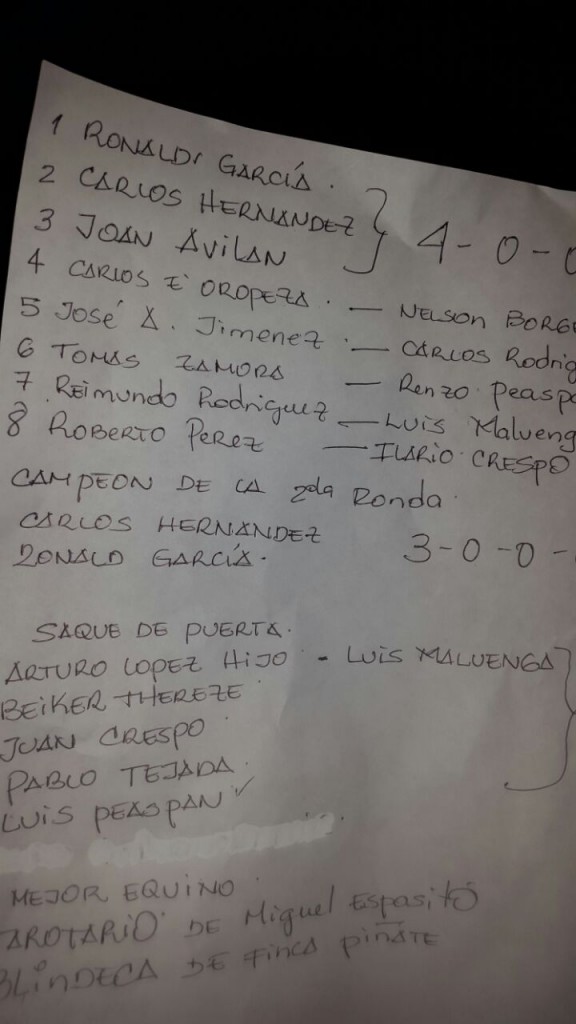 1 RONALDI GARCÍA.
2 CARLOS HERNANDEZ
3 JOAN AVILAN
4-0-0
4 CARLOS E OROPEZA. — NELSON BORG
5 JOSÉ A. Jimenez. — CARLOS Rodrig
6 TOMAS ZAMORA — Renzo Peasp
7 Reimundo Rodriguez — LUIS Malueng
8 ROBERTO PEREZ — ILARIO CRESPO
CAMPEON DE LA 2da RONDA.
CARLOS HERNANDEZ
RONALD GARCÍA. 3-0-0-
SAQUE DE PUERTA.
ARTURO LOPEZ HIJO - LUIS MALUENGA
BEIKER THEREZE
JUAN CRESPO
PABLO TEJADA.
LUIS PEASPAN ✓
MEJOR EQUINO.
AROTARIO DE Miguel Espasito
BLINDECA DE FINCA PIÑATE